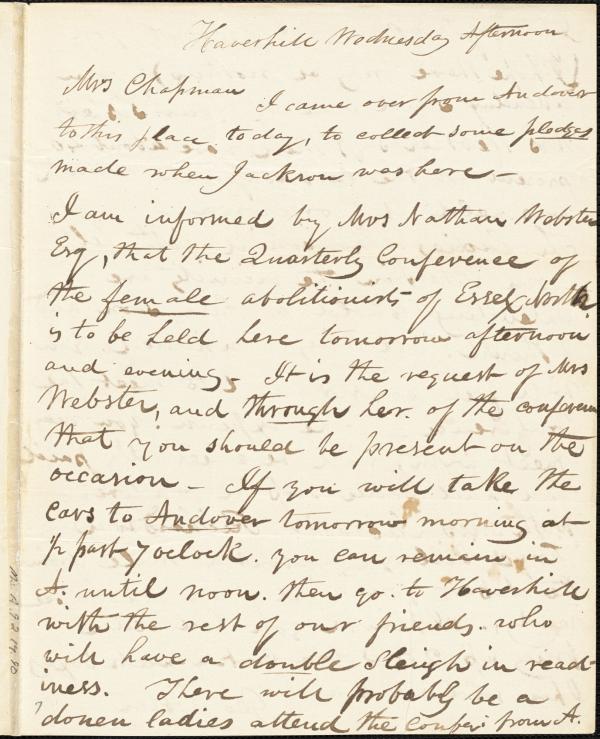 Haverhill Wednesday Afternoon
Mrs Chapman
I came over from Andover
to this place today, to collect some pledges
made when Jackson was here –
I am informed by Mrs Nathan Webster
Esq, that the Quarterly Conference of
the female abolitionists of Essex North
is to be held here tomorrow afternoon
and evening – It is the request of Mrs
Webster, and through her. of the conference
that you should be present on the
occasion – If you will take the
cars to Andover tomorrow morning at
½ past 7 oclock. you can remain in
A. until noon. then go to Haverhill
with the rest of our friends. who
will have a double sleigh in read-
iness. There will probably be a
dozen ladies attend the confer: from A.